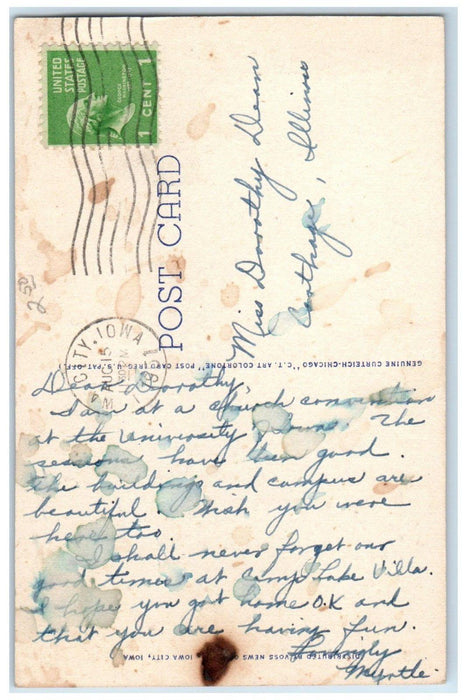 UNITED
STATES
POSTAGE
GEORGE
WASHINGTON
1 CENT 1
POST CARD
Miss Dorothy Dean
Carthage, Illinois
2 50
CITY, IOWA
AUG 15
M
GENUINE CURTEICH-CHICAGO "C.T. ART COLORTONE" POST CARD (REG. U.S. PAT. OFF.)
Dear Dorothy,
I am at a church convention
at the University Iowa. The
sessions have been good.
The buildings and campus are
beautiful. Wish you were
here too.
I shall never forget our
good times at Camp Lake Villa.
I hope you got home O.K and
that you are having fun.
Lovingly
Myrtle
DISTRIBUTED BY VOSS NEWS CO., IOWA CITY, IOWA